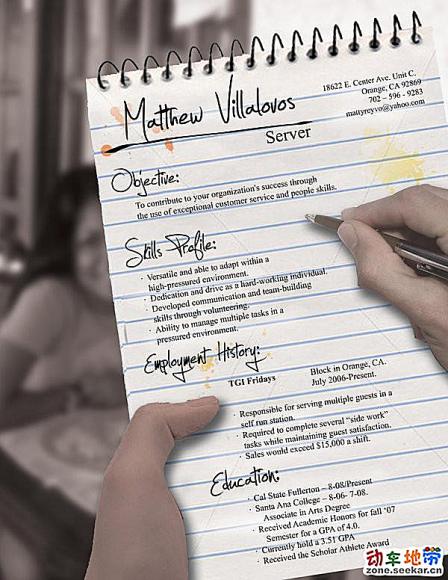 Matthew Villalovos
18622 E. Center Ave. Unit C.
Orange, CA 92869
702 – 596 - 9283
mattyreyvo@yahoo.com
Server
Objective:
To contribute to your organization's success through
the use of exceptional customer service and people skills.
Skills Profile:
· Versatile and able to adapt within a
high-pressured environment.
· Dedication and drive as a hard-working individual.
· Developed communication and team-building
skills through volunteering.
· Ability to manage multiple tasks in a
pressured environment.
Employment History:
TGI Fridays
Block in Orange, CA.
July 2006-Present.
· Responsible for serving multiple guests in a
self run station.
· Required to complete several "side work"
tasks while maintaining guest satisfaction.
· Sales would exceed $15,000 a shift.
Education:
· Cal State Fullerton – 8-08/Present
· Santa Ana College – 8-06- 7-08.
Associate in Arts Degree
· Received Academic Honors for fall '07
Semester for a GPA of 4.0.
· Currently hold a 3.51 GPA
· Received the Scholar Athlete Award
动车地带
zone.seekar.cn